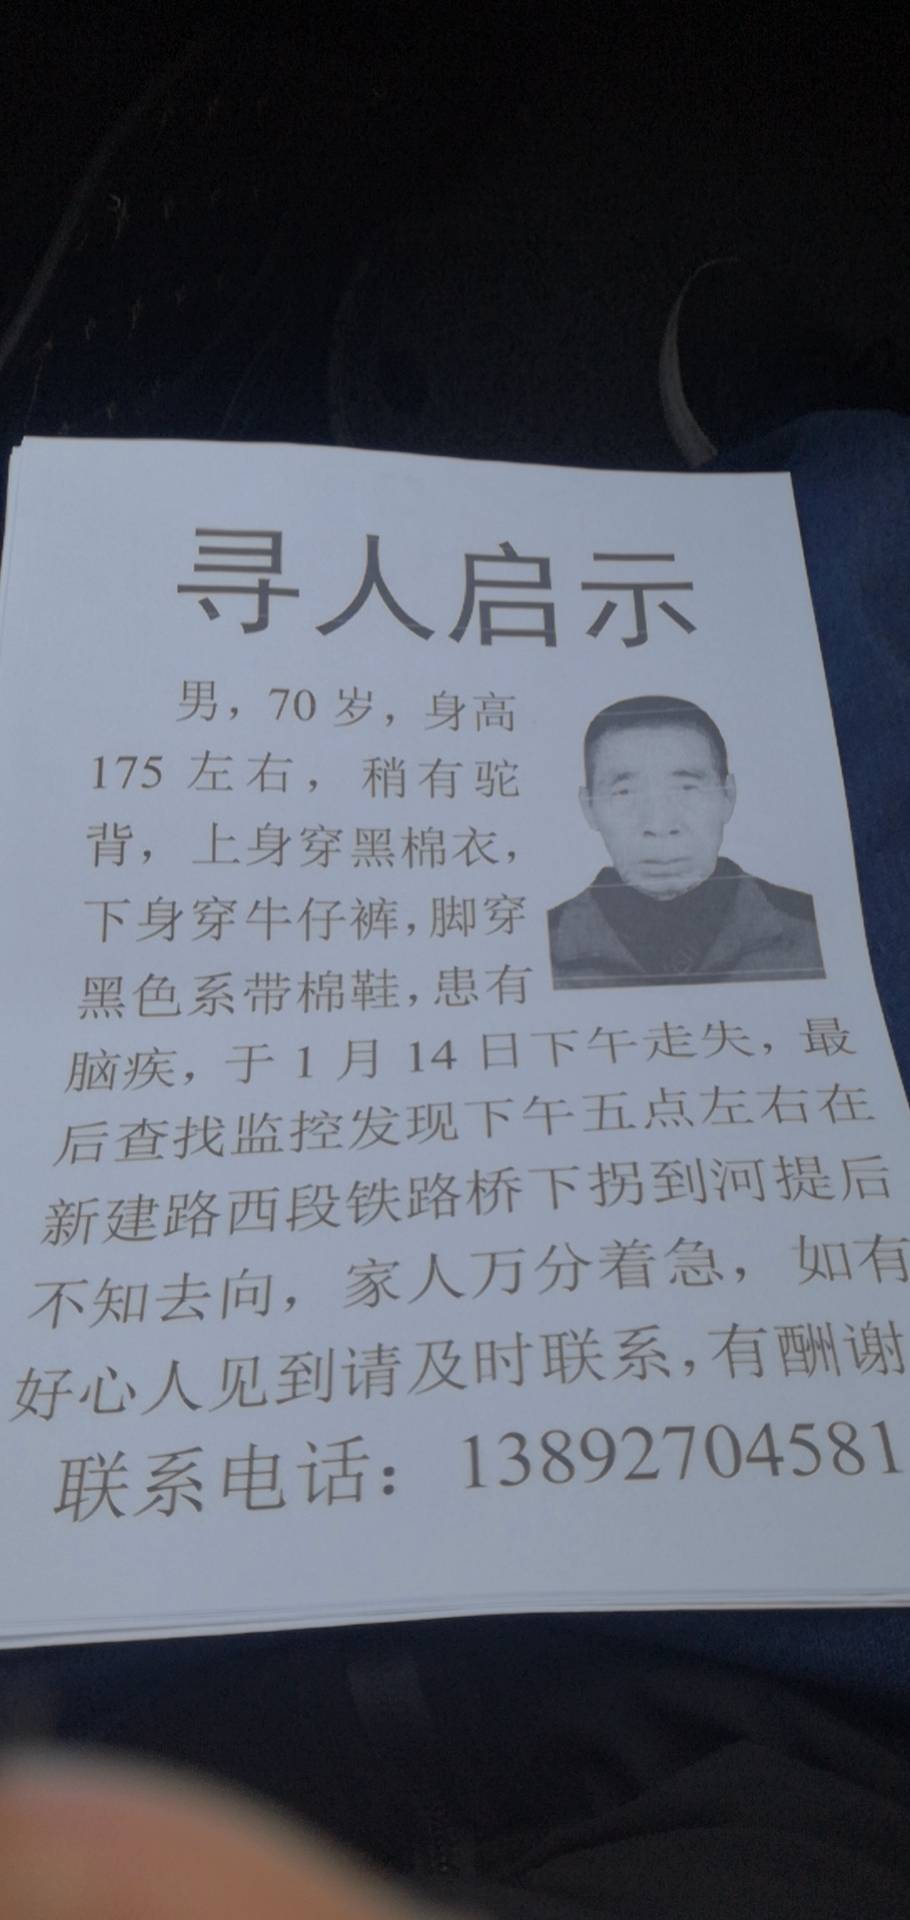 寻人启示
男，70 岁，身高
175 左右，稍有驼
背，上身穿黑棉衣，
下身穿牛仔裤，脚穿
黑色系带棉鞋，患有
脑疾，于 1 月 14 日下午走失，最
后查找监控发现下午五点左右在
新建路西段铁路桥下拐到河提后
不知去向，家人万分着急，如有
好心人见到请及时联系，有酬谢
联系电话：13892704581